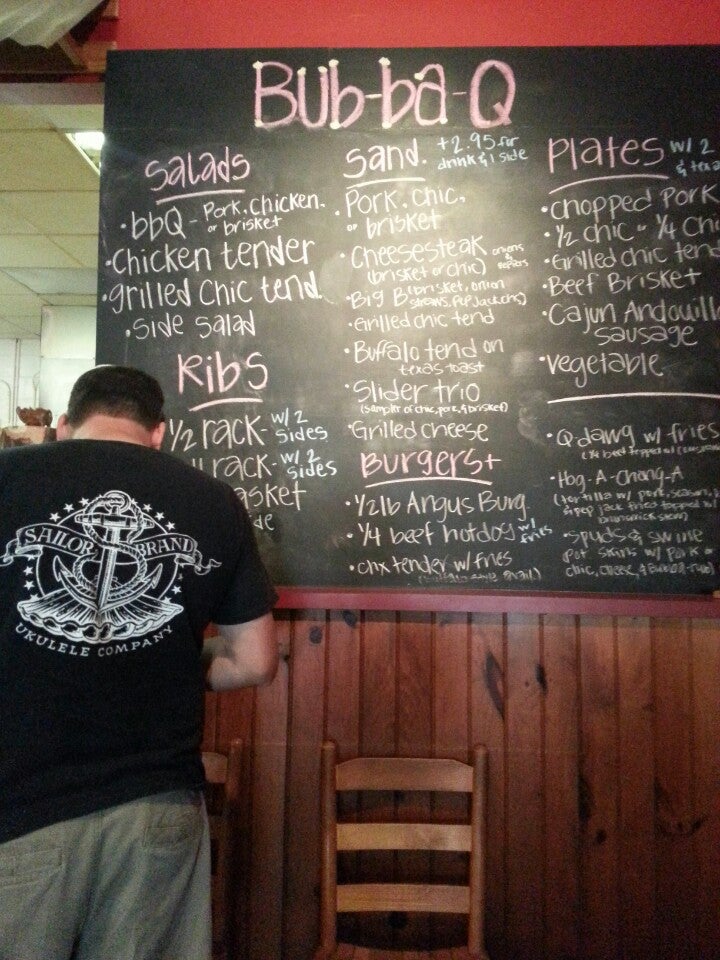 BUb-ba-Q
Salads
• bbQ - Pork, Chicken,
or brisket
• Chicken tender
• grilled chic tend.
• Side Salad
Ribs
1/2 rack - w/ 2
Sides
rack - w/ 2
Sides
Sand. + 2.95 for
drink & 1 side
• Pork, chic,
or brisket
• Cheesesteak onions
(brisket or chic) &
• Big B (brisket, onion
straws,
• Grilled chic tend
• Buffalo tend on
texas toast
• Slider trio
(sampler of chic, pork, & brisket)
• Grilled cheese
Burgers +
• 1/2 lb Angus Burg.
• 1/4 beef hotdog w/
fries
• chx tender w/ fries
Plates w/ 2
&
• chopped Pork
• 1/2 chic or 1/4
• Grilled chic
• Beef Brisket
• Cajun
sausage
• vegetable
• Q dawg w/ fries
• Hog-A-Chang-A
(tortilla w/ pork,
& pep jack fried topped w/
brunswick stew)
• Spuds & swine
(pot skins w/ pork or
chic, cheese, &
SAILOR BRAND
UKULELE COMPANY